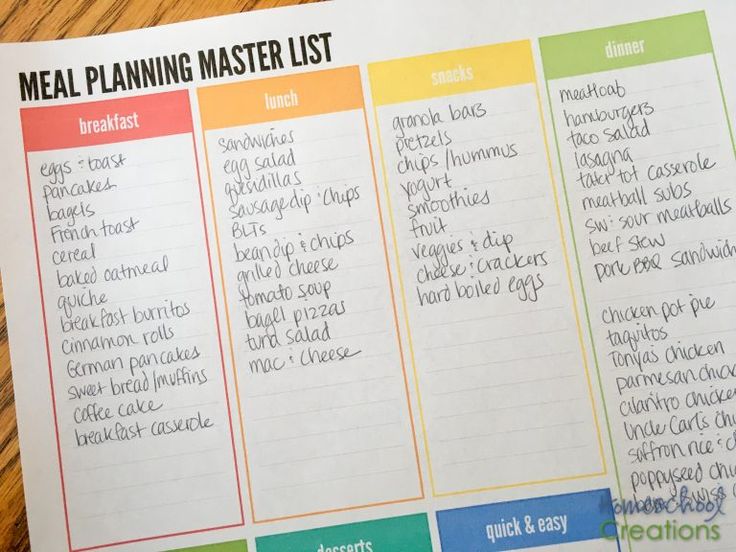 MEAL PLANNING MASTER LIST
breakfast
eggs & toast
pancakes
bagels
French toast
cereal
baked oatmeal
quiche
breakfast burritos
cinnamon rolls
German pancakes
sweet bread/muffins
coffee cake
breakfast casserole
lunch
sandwiches
egg salad
quesidillas
sausage dip & chips
BLTs
bean dip & chips
grilled cheese
tomato soup
bagel pizzas
tuna salad
mac & cheese
snacks
granola bars
pretzels
chips/hummus
yogurt
smoothies
fruit
veggies & dip
cheese & crackers
hard boiled eggs
dinner
meatloaf
hamburgers
taco salad
lasagna
tater tot casserole
meatball subs
sw & sour meatballs
beef stew
pork BBQ sandwich
chicken pot pie
taquitos
Tonya's chicken
parmesan chick
cilantro chicken
Uncle Carl's chi
saffron rice & c
poppyseed chi
desserts
quick & easy
Homeschool
Creations